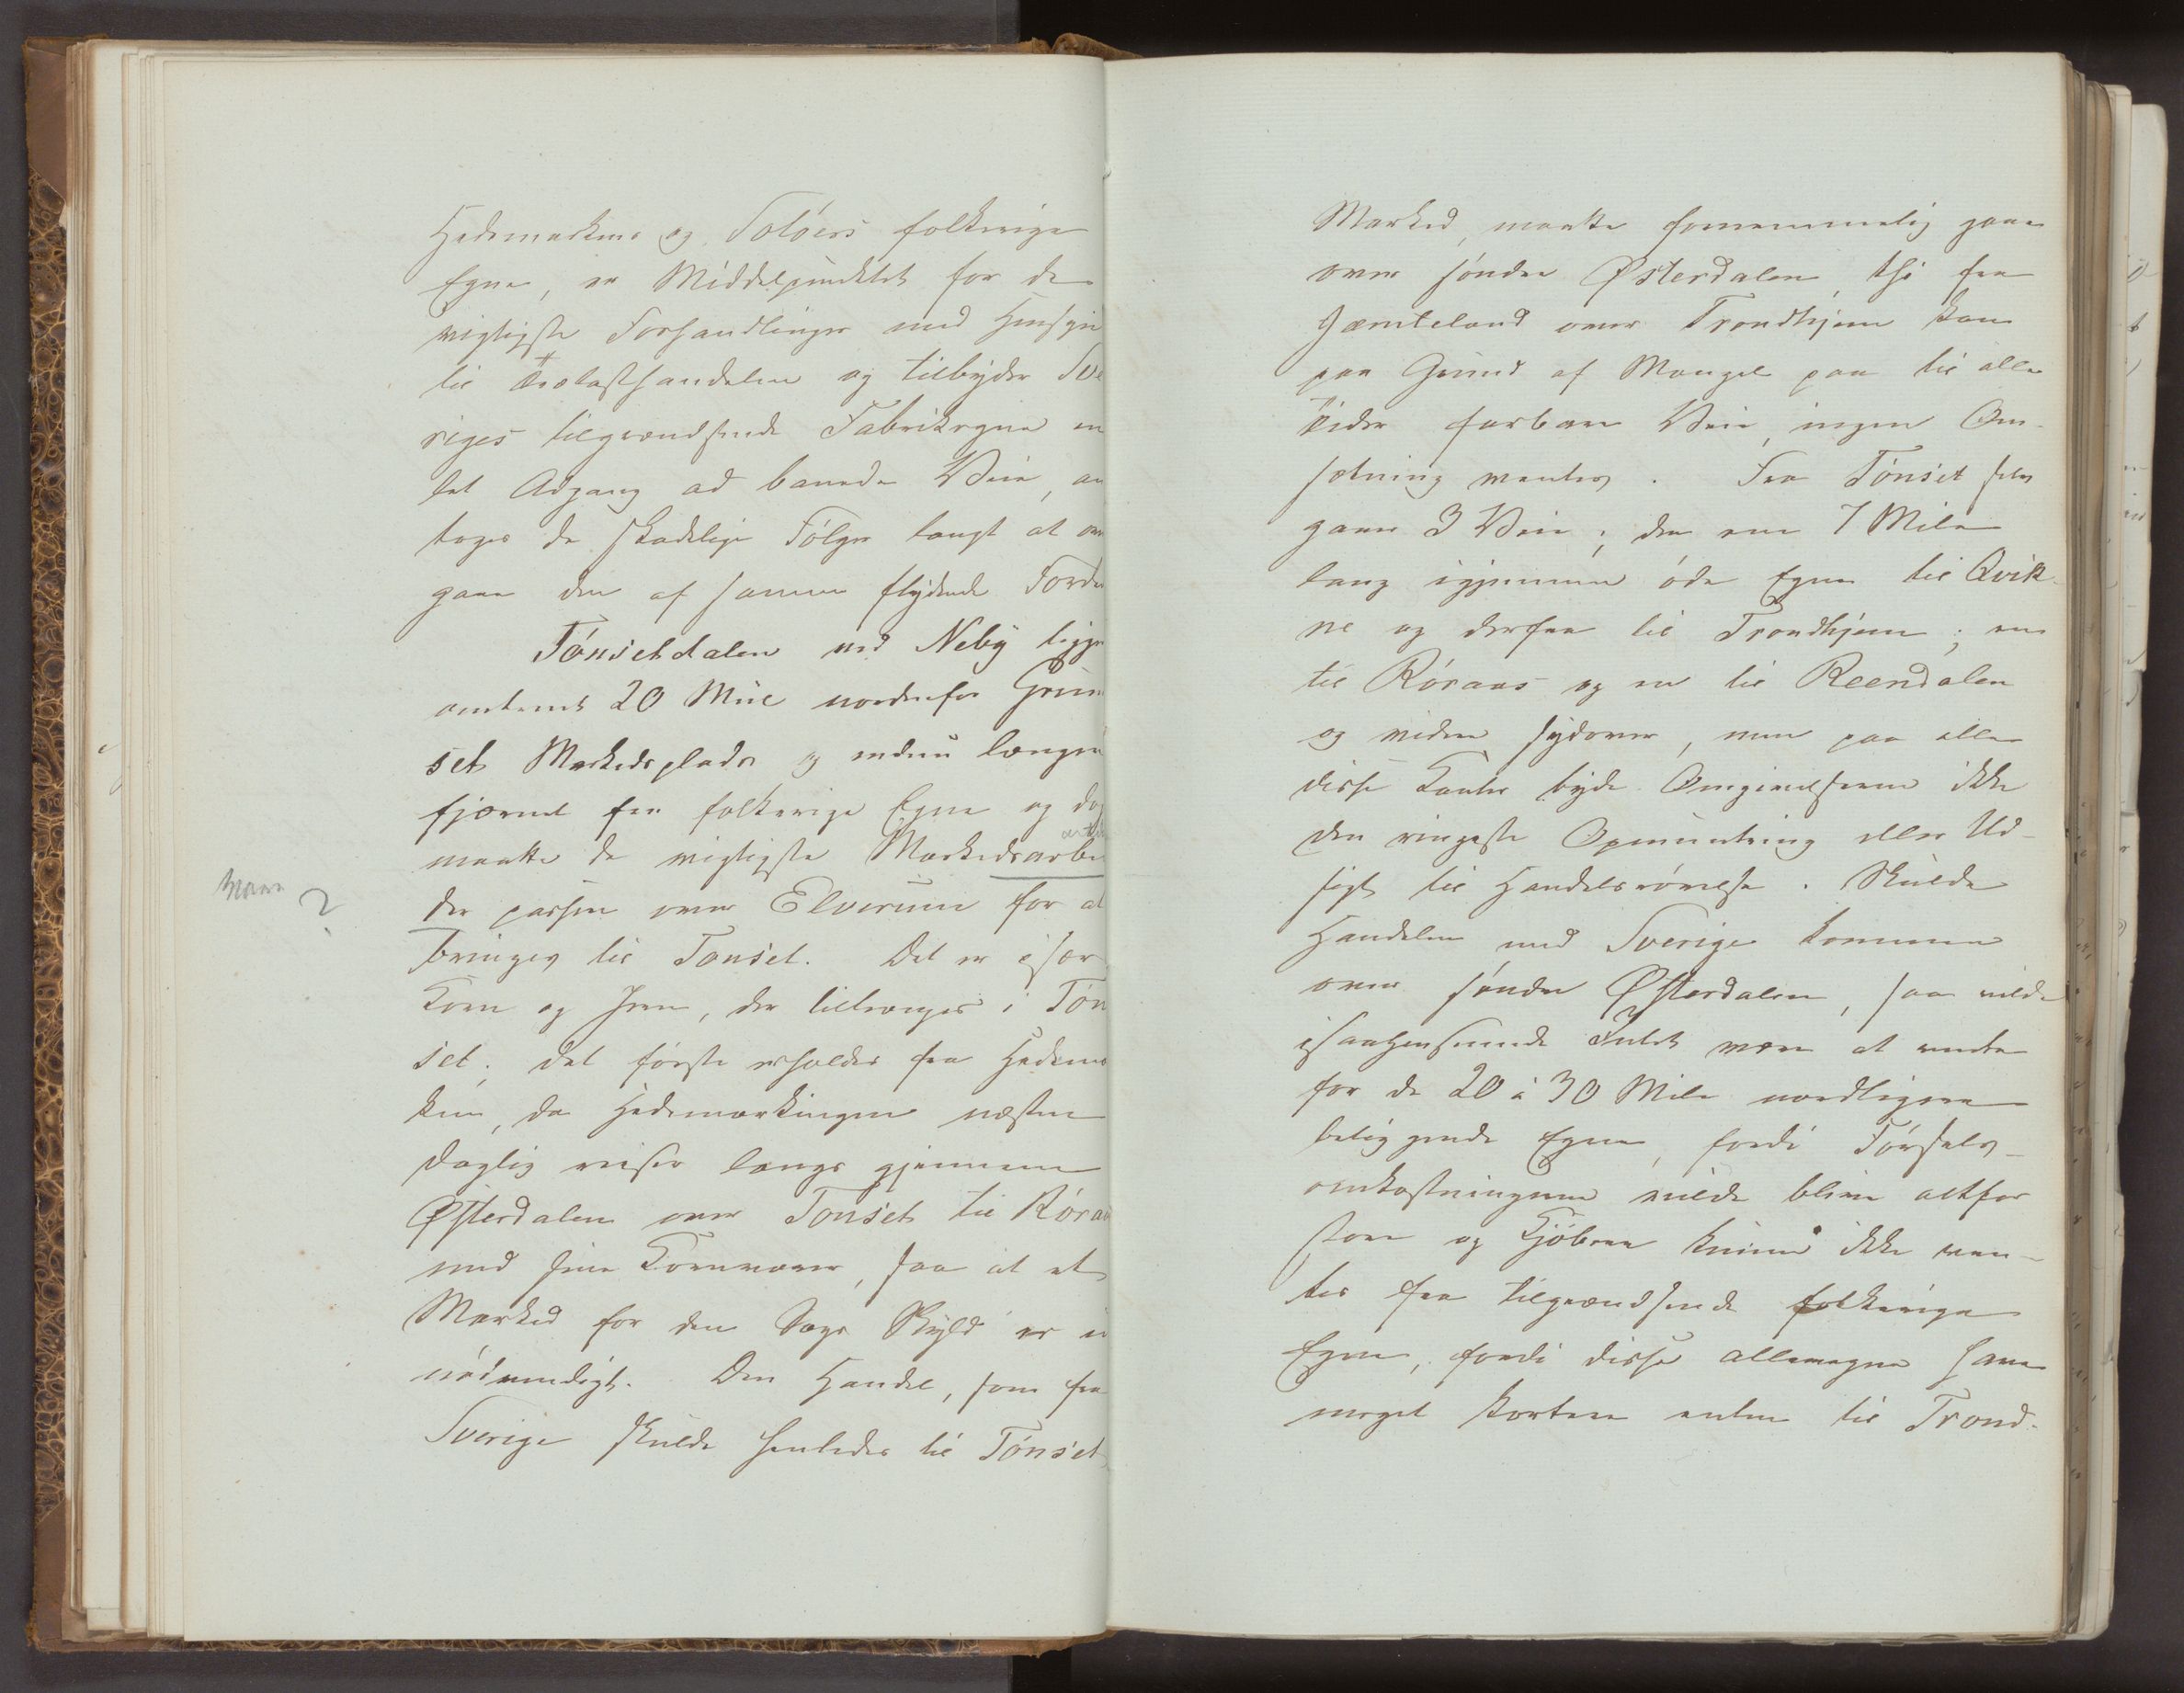 Hedemarkens og Solöers folkerige
Egne, er Middelpunktet for de
vigtigste Forhandlinger med Hensyn
til Trælasthandelen og tilbyder Sve
riges tilgrændsende Fabrikegne en
let Adgang ad banede Veie, an
tages de skadelige Fölger langt at over
gaae den af samme flydende Forde
Tönsetdalen ved Neby ligger
omtrent 20 Mile nordenfor Grun
set Markedsplads og endnu længere
fjernet fra folkerige Egne og dog
maatte de vigtigste Markedsarbei
artik
Varer ?
der passere over Elverum for at
bringes til Tonset. Det er især
Korn og Jern, der tiltrænges i Tön
set; det förste erholdes fra Hedema
ken, da Hedemarkingen næsten
daglig reiser langs gjennem
Østerdalen over Tonset til Röraa
med sine Kornvarer, saa at et
Marked for den Sags Skyld er u
nödvendigt. Den Handel, som fra
Sverige skulde henledes til Tönset
Marked, maatte fornemmelig gaae
over söndre Østerdalen, thi fra
Jæmteland over Trondhjem kan
paa Grund af Mangel paa til alle
Tider farbare Veie, ingen Om-
sætning ventes. Fra Tönset selv
gaaer 3 Veie; den ene 7 Mile
lang igjennem öde Egne til Qvik-
ne og derfra til Trondhjem; en
til Röraas og en til Reendalen
og videre sydover, men paa alle
disse Kanter byde Omgivelserne ikke
den ringeste Opmuntring eller Ud-
sigt til Handelsrörelse. Skulde
Handelen med Sverige komme
over söndre Østerdalen, saa vilde
isaahenseende Intet være at vente
for de 20 à 30 Mile nordligere
beliggende Egne, fordi Försels-
omkostningerne vilde blive altfor
store og Kjöbere kunne ikke ven-
tes fra tilgrændsende folkerige
Egne, fordi disse allevegne have
meget kortere enten til Trond-